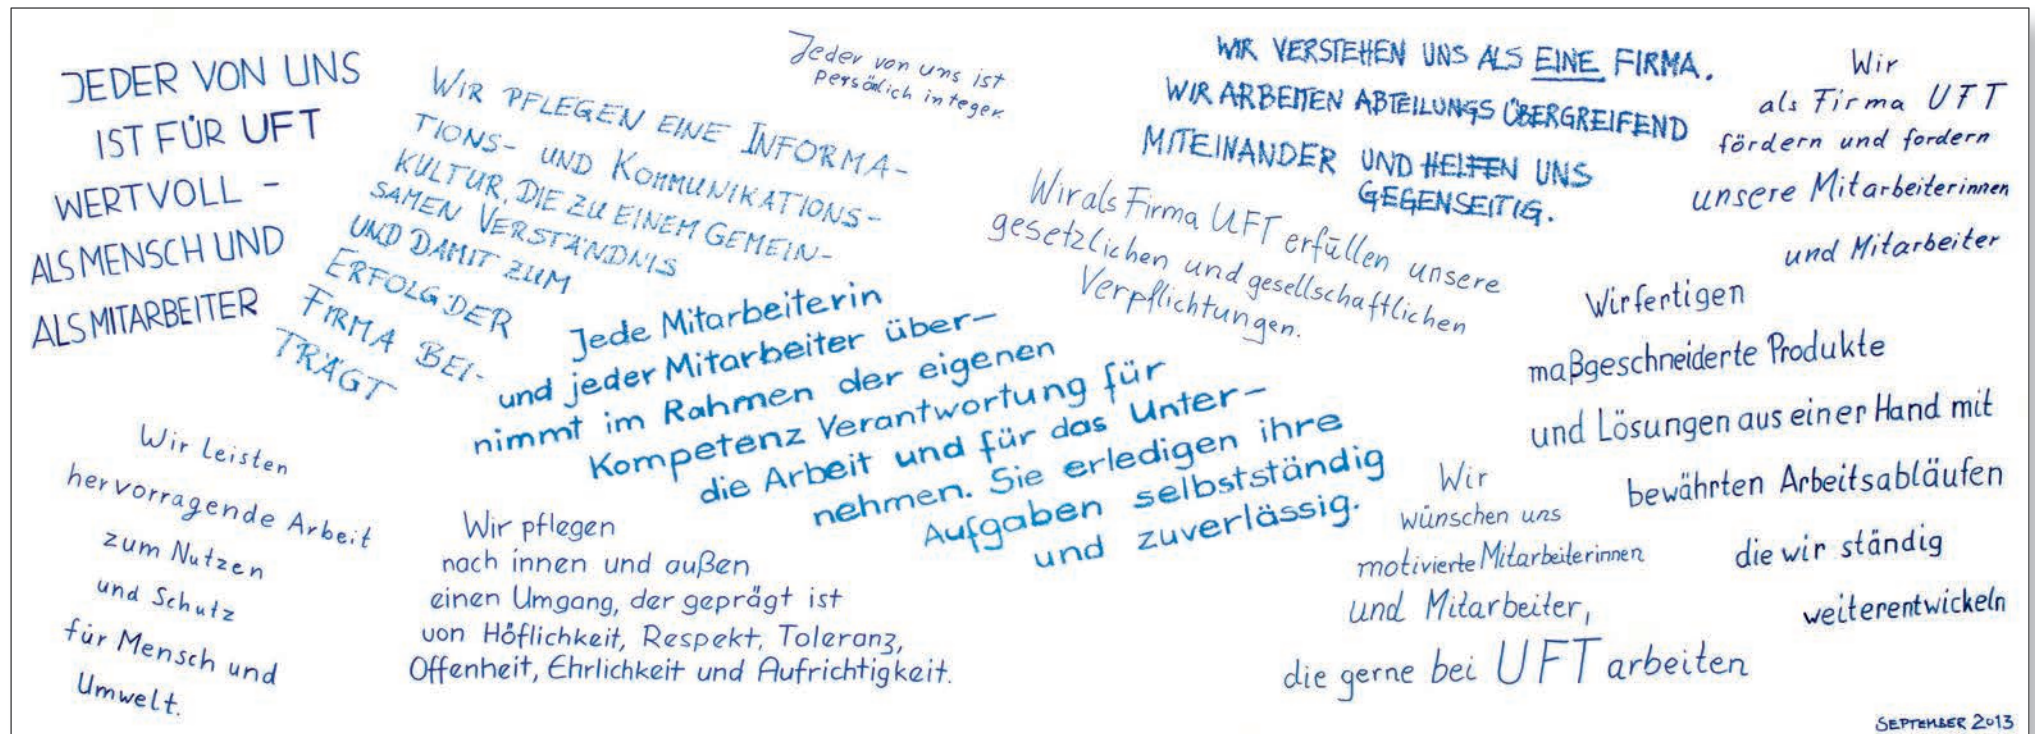 JEDER VON UNS
IST FÜR UFT
WERTVOLL –
ALS MENSCH UND
ALS MITARBEITER
WIR PFLEGEN EINE INFORMA-
TIONS- UND KOMMUNIKATIONS-
KULTUR, DIE ZU EINEM GEMEIN-
SAMEN VERSTÄNDNIS
UND DAMIT ZUM
ERFOLG DER
FIRMA BEI-
TRÄGT
Jeder von uns ist
persönlich integer.
WIR VERSTEHEN UNS ALS EINE FIRMA.
WIR ARBEITEN ABTEILUNGS ÜBERGREIFEND
MITEINANDER UND HELFEN UNS
GEGENSEITIG.
Wir
als Firma UFT
fördern und fordern
unsere Mitarbeiterinnen
und Mitarbeiter
Wir als Firma UFT erfüllen unsere
gesetzlichen und gesellschaftlichen
Verpflichtungen.
Jede Mitarbeiterin
und jeder Mitarbeiter über-
nimmt im Rahmen der eigenen
Kompetenz Verantwortung für
die Arbeit und für das Unter-
nehmen. Sie erledigen ihre
Aufgaben selbstständig
und zuverlässig.
Wir fertigen
maßgeschneiderte Produkte
und Lösungen aus einer Hand mit
bewährten Arbeitsabläufen
die wir ständig
weiterentwickeln
Wir leisten
hervorragende Arbeit
zum Nutzen
und Schutz
für Mensch und
Umwelt.
Wir pflegen
nach innen und außen
einen Umgang, der geprägt ist
von Höflichkeit, Respekt, Toleranz,
Offenheit, Ehrlichkeit und Aufrichtigkeit.
Wir
wünschen uns
motivierte Mitarbeiterinnen
und Mitarbeiter,
die gerne bei UFT arbeiten
SEPTEMBER 2013